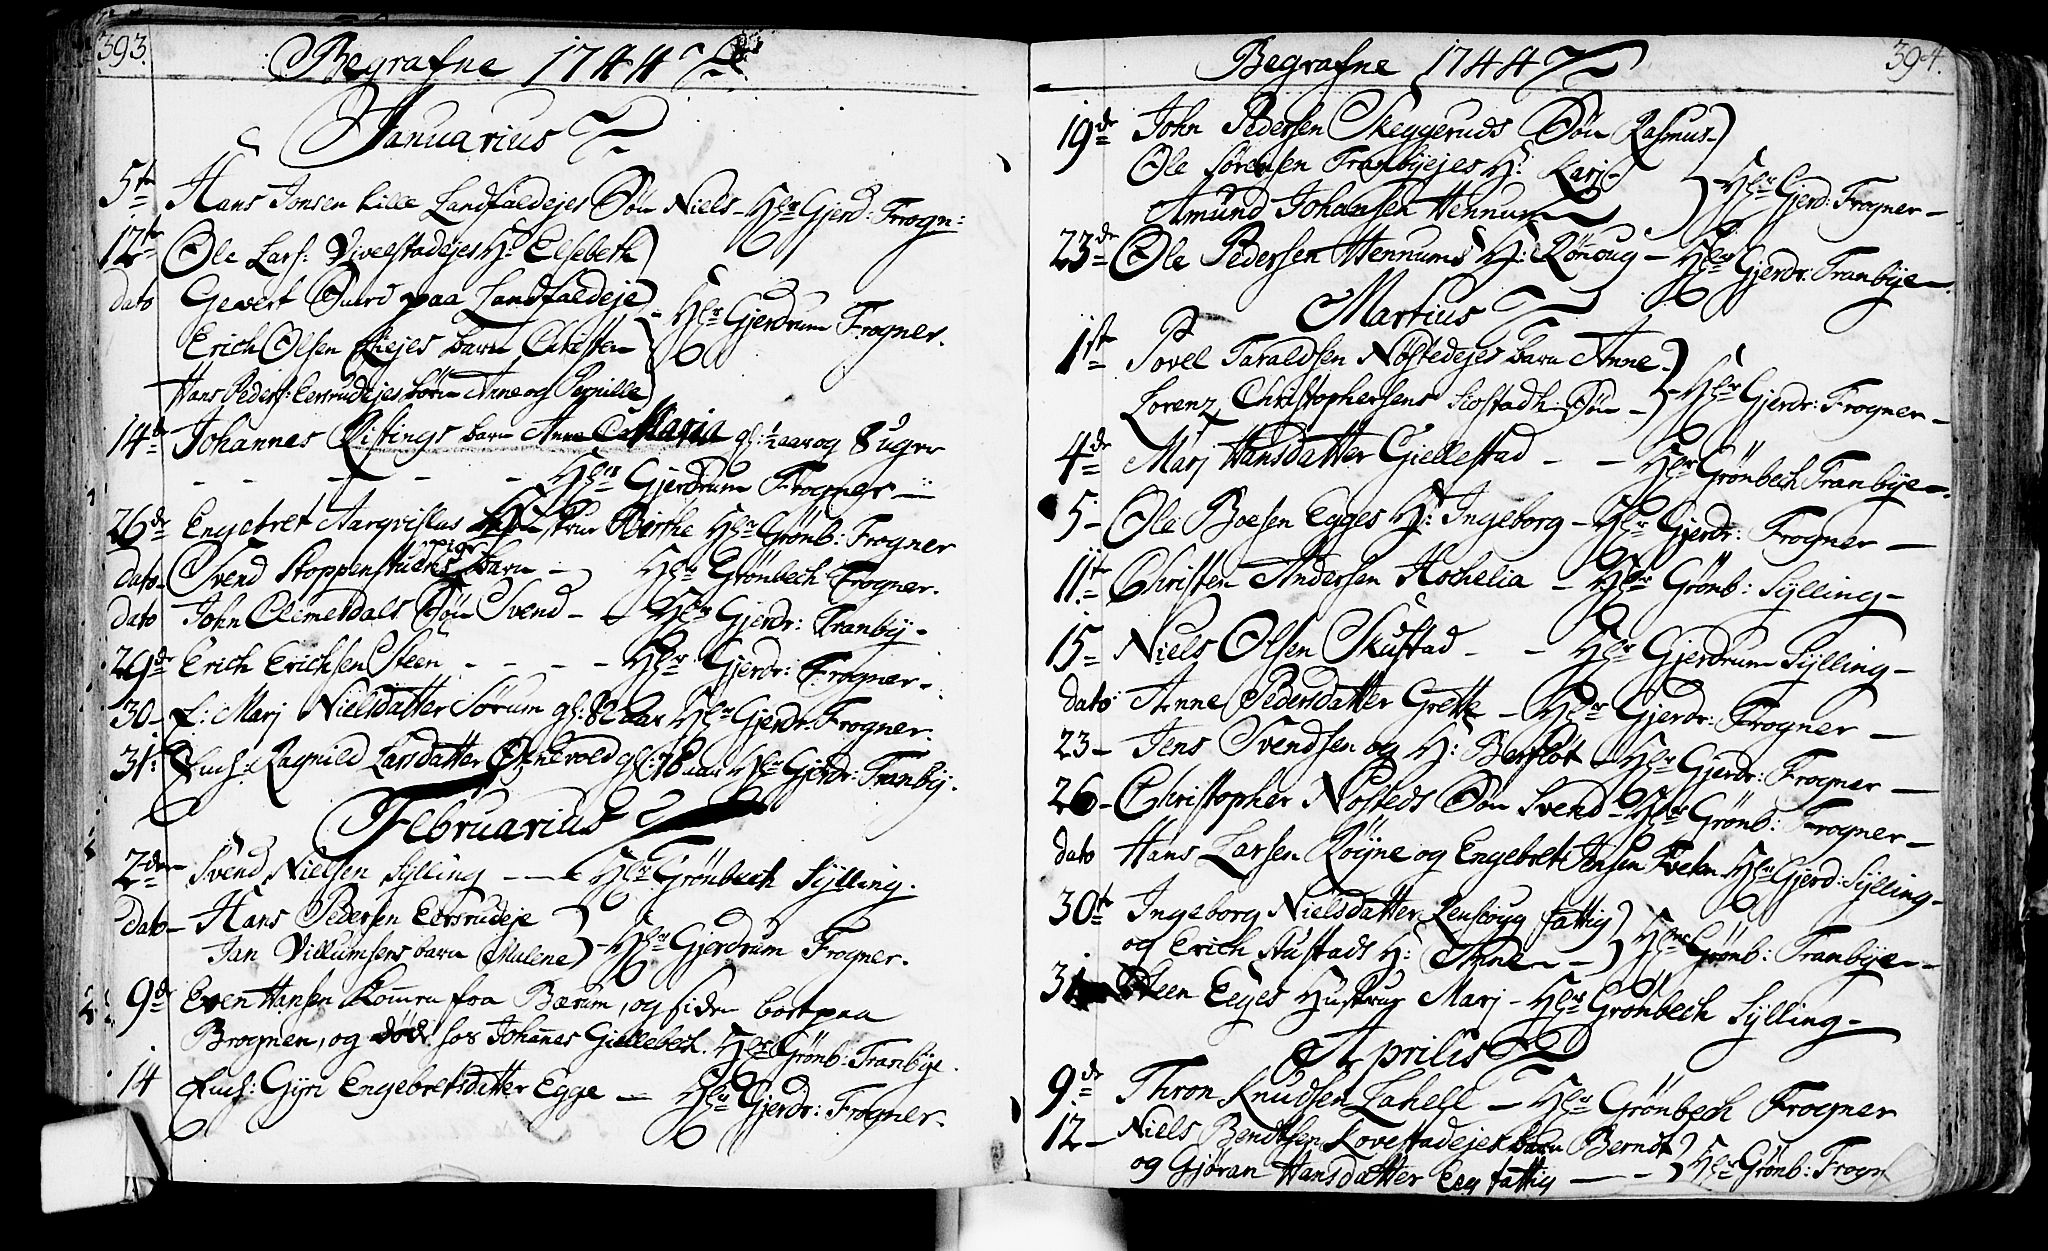 393.
Begrafne 1744
Januarius
5te Hans Jonsen Lille Landfaldejes Søn Niels - Hlr Gjerd: Frogn:
12te Ole Lars: Vivelstadejes H: Elsebeth
dato Gewert paa Landfaldeje - Hlr Gjerdrum Frogner.
Erich Olsen barn
Hans Peders: Eersrudejes børn Anne og Pernille
14de Johannes Risings barn Anna Maria gl: ½ aar og 8 uger
- - - - - Hlr Gjerdrum Frogner -
26de Engebret Hustrue Birthe Hlr Grönb: Frogner
dato - Svend Stoppenstuens pige barn - Hlr Grönbech Frogner.
dato John Søn Svend - - Hlr Gjerdr: Franby -
29de Erich Erichsen Steen - - - - Hlr Gjerdr: Frogner -
30 - E: Marj Nielsdatter Sørum gl: 82 aar Hlr Gjerdr: Frogner.
31: Ench: Ragnild Larsdatter gl: 78 aar Hlr Gjerdr: Franby.
Februarius
2den Svend Nielsen Sylling - - Hlr Grönbech Sylling.
dato - Hans Pedersen Eersrudeje
Jan Villumsens barn Malene - Hlr Gjerdrum Frogner.
9de Even Hansen Kom̄en fra Bærum, og siden boet paa
Brognen, og døde hos Johan̄es Giellebech. Hlr Grönb: Franbye.
14 Ench: Gyri Engebretsdatter Egge - Hlr Gjerdr: Frogner.
394.
Begrafne 1744
19de John Pedersen Skeggeruds Søn Rasmus -
Ole Sörensen Franbyejes H: Karj - - Hlr Gjerd: Frogner -
Amund Johansen Hennum
23de Ole Pedersen Hennums H: Rönoug - Hlr Gjerdr: Franbye -
Martius
1ste Povel Taraldsen Nöstedejes barn Anne -
Lorenz Christophersens Søn - - Hlr Gjerdr: Frogner -
4de Marj Hansdatter Giellestad - - Hlr Grönbech Franbye -
5 - Ole Boesen Egges H: Ingeborg - Hlr Gjerdr: Frogner -
11te Christen Andersen - Hlr Grönb: Sylling -
15 - Niels Olsen Skustad - - Hlr Gjerdrum Sylling -
dato Anne Pedersdatter Grette - Hlr Gjerdr: Frogner -
23 - Jens Svendsen og H: Berthe - Hlr Gjerdr: Frogner -
26 - Christopher Nösteds Søn Svend - Hlr Grönb: Frogner -
dato Hans Larsen Röyne og Engebret Jensen Hlr Gjerd: Sylling -
30te Ingeborg Nielsdatter fattig
og Erich Stustads H: Anne - - Hlr Grönb: Franbye -
31 Steen Egges Hustrue Marj - Hlr Grönbech Sylling -
Aprilis
9de Thron Knudsen Lahell - Hlr Grönbech Frogner
12 - Niels Bendtsen barn Berndt
og Gjöran Hansdatter Egg fattig - - Hlr Grönb: Frogn